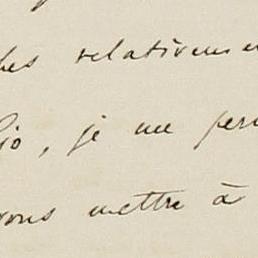 hes relativeme
io, je me per
vous mettre à